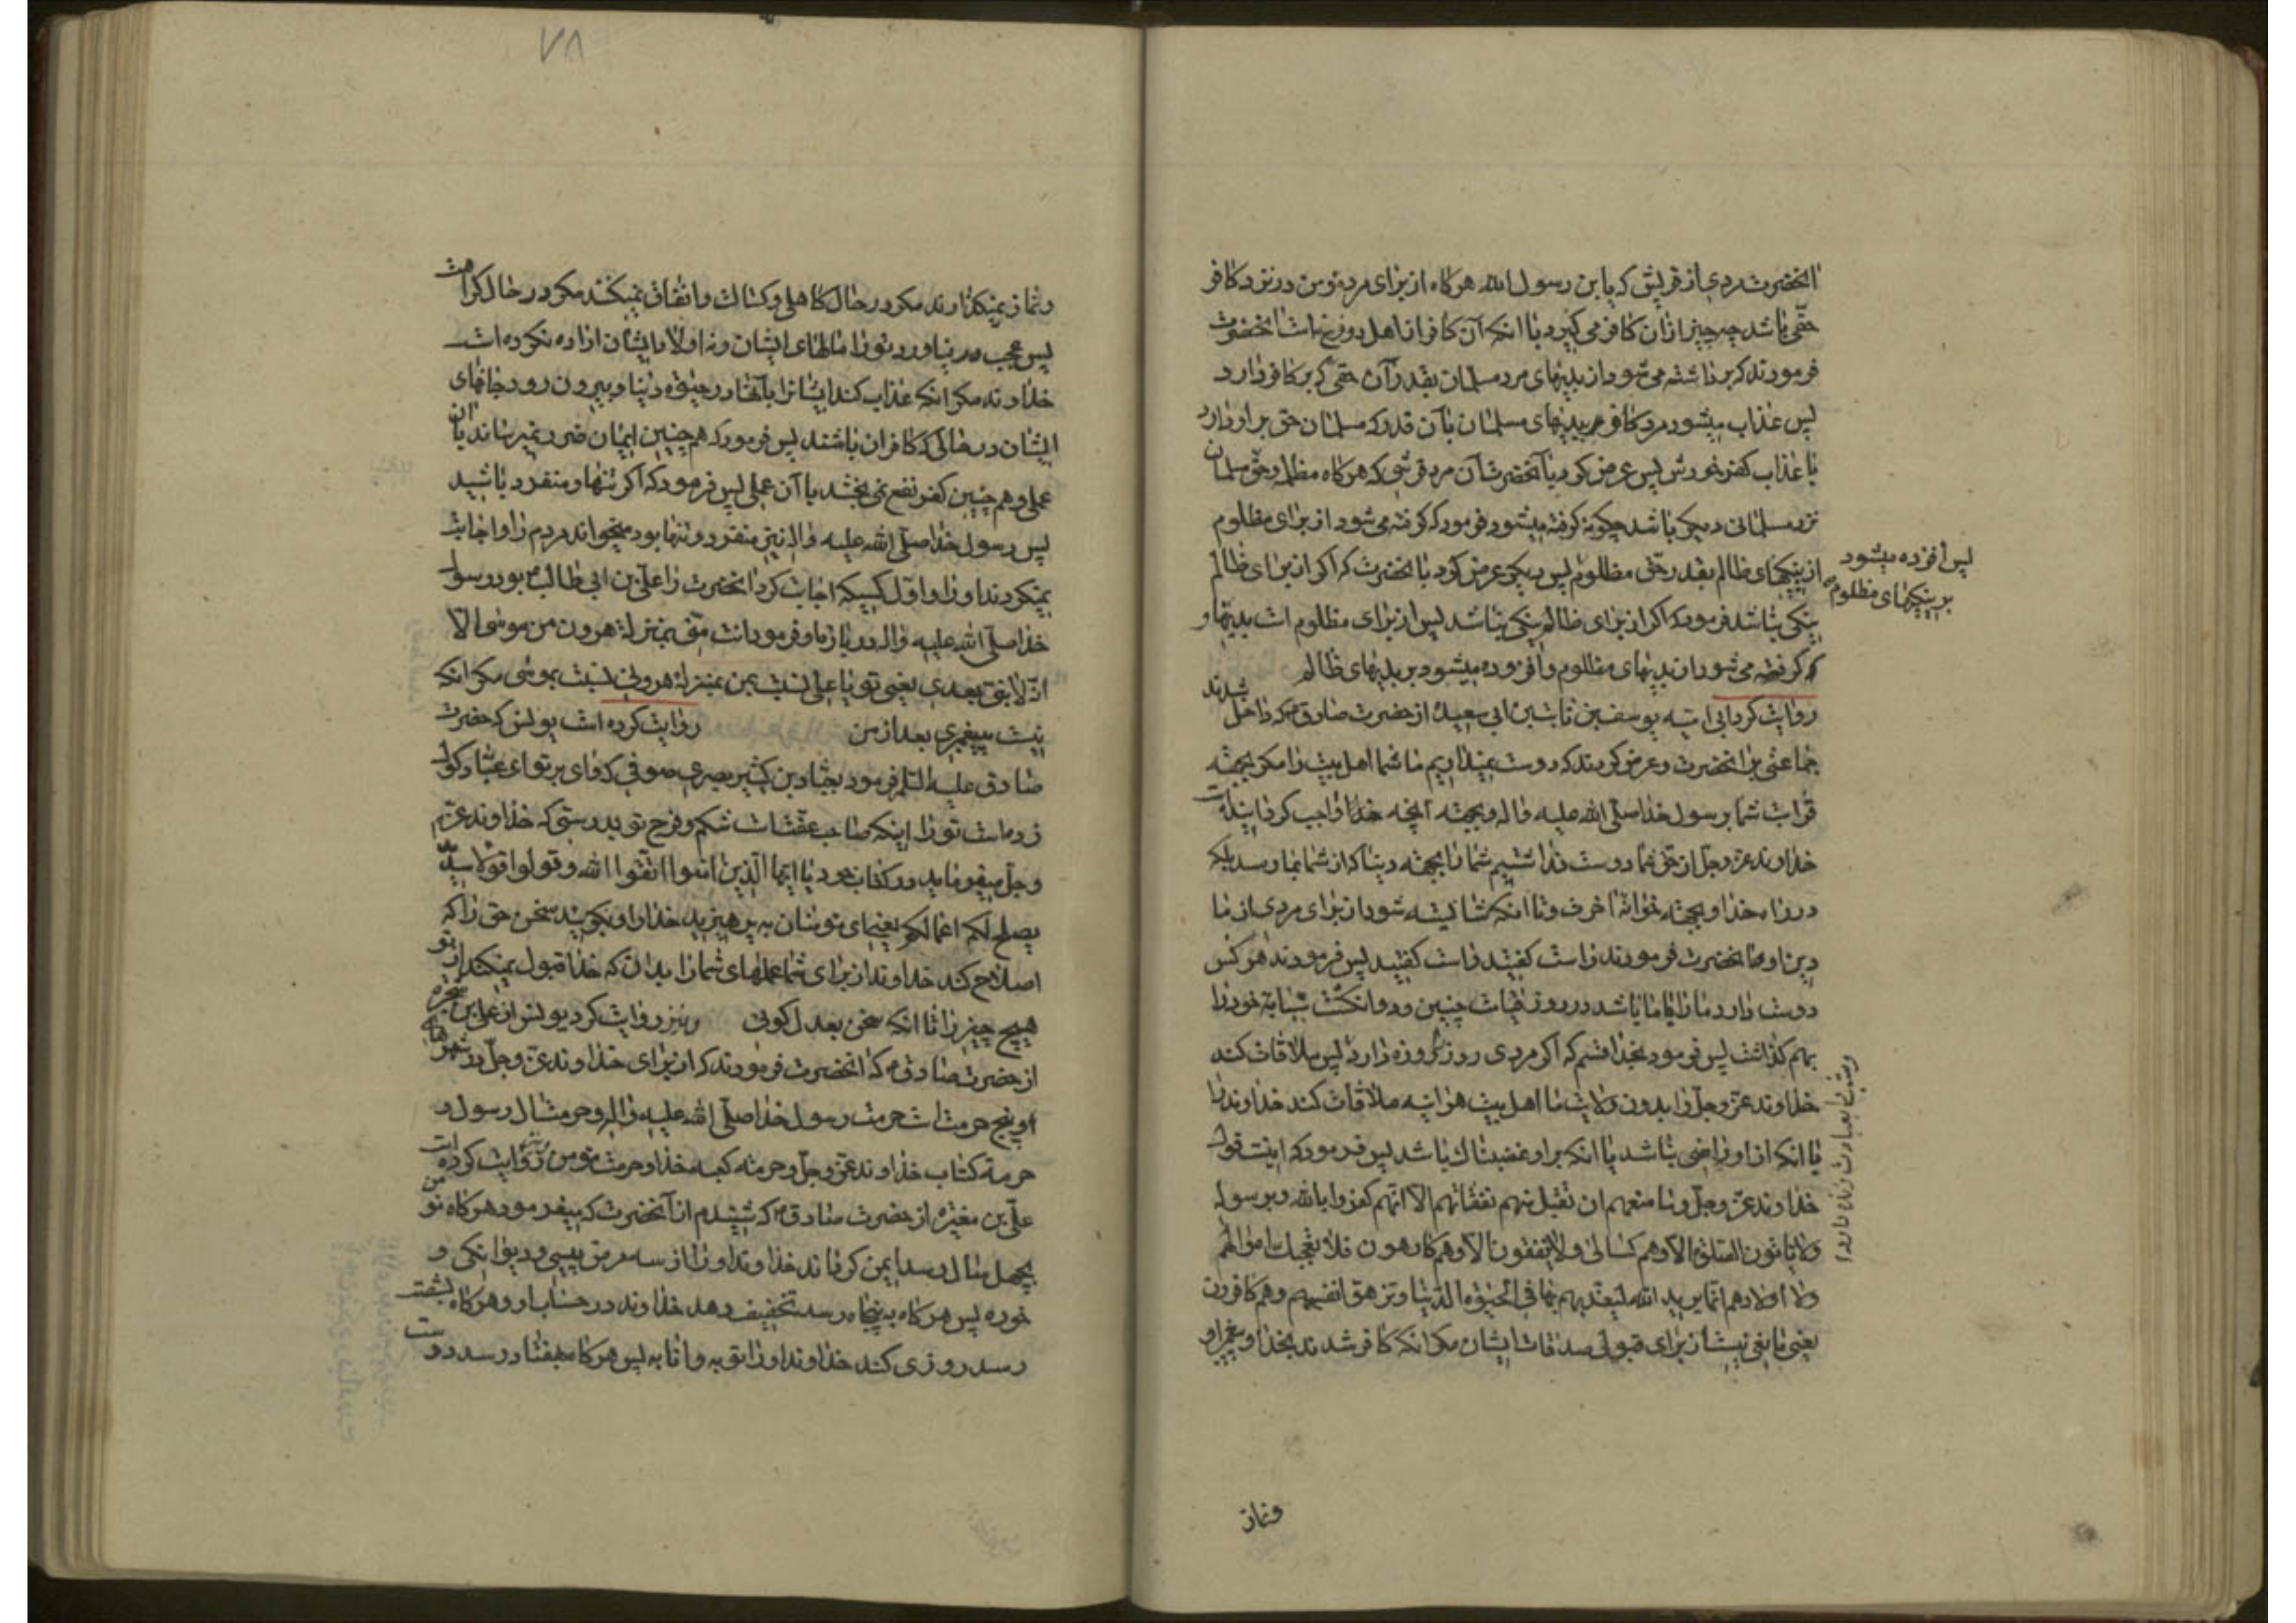 آنحضرت مردی از قریش که یابن رسول الله هرکاه از برای مرد مومن در نزد کافر
حقّی باشد چه چیز از ان کافر می کیرد با انکه آن کافر از اهل دوزخ است آنحضرت
فرمودند که برداشته می شود از بدیهای مرد مسلمان بقدر آن حقی که بر کافر دارد
پس عذاب میشود مرد کافر ببدیهای مسلمان بآن قدر که مسلمان حق بر او دارد
با عذاب کفر خودش پس عرض کرد بآنحضرت آن مرد قرشی که هرکاه مظلمه و حقّ مسلمان
نزد مسلمانی دیکر باشد چکونه کرفته میشود فرمود که کرفته می شود از برای مظلوم
از نیکیهای ظالم بقدر حقّ مظلوم پس دیکر عرض کرد با آنحضرت که اکر از برای ظالم
پس افزده میشود
بر نیکیهای مظلوم
نیکی نباشد فرمود که اکر از برای ظالم نیکی نباشد پس از برای مظلوم است بدیها و
که کرفته می شود از بدیهای مظلوم و افزوده میشود بر بدیهای ظالم
روایت کرد ابی امیّه یوسف بن ثابت بن ابی سعیده از حضرت صادق ع که داخل شدند
جماعتی بر آنحضرت و عرض کردند که دوست نمیداریم ما شما اهل بیت را مکر بجهة
قرابت شما برسول خدا صلّی الله علیه واله و بجهته آنچه خدا واجب کردانیده است
خداوند عزّ وجلّ از حق شما دوست نداشتیم شما را بجهته دنیا که از شما بما رسد بلکه
در راه خدا و بجهته خوانه آخرت و تا انکه شایسته شود از برای مردی از ما
دین او آنحضرت فرمودند راست کفتید راست کفتید پس فرمودند هرکس
دوست دارد ما را با ما باشد در روز قیامت چنین و دو انکشت سبّابه خود را
بهم کذاشت پس فرمود بخدا قسم که اکر مردی روز را روزه دارد پس ملاقات کند
خداوند عزّ وجلّ را بدون ولایت ما اهل بیت هرآینه ملاقات کند خداوند را
و شب را بعبادت زنده دارد
با انکه از او راضی نباشد یا انکه بر او غضبناک باشد پس فرمود که اینست قول
خداوند عزّ وجلّ وما منعهم ان تقبل منهم نفقاتهم الّا انّهم کفروا بالله وبرسوله
ولا یاتون الصلوة الّا وهم کسالی ولا ینفقون الّا وهم کارهون فلا تعجبک اموالهم
ولا اولادهم انّما یرید الله لیعذّبهم بها فی الحیوة الدّنیا وتزهق انفسهم وهم کافرون
یعنی مانعی نیست از برای قبولی صدقات ایشان مکر انکه کافر شدند بخدا و پیغمبر او
و نماز
۷۸
و نماز نمیکذارند مکر در حال کاهلی و کسالت و انفاق نمیکنند مکر در حال کراهت
پس عجب در نیاورد تو را مالهای ایشان و نه اولاد ایشان اراده نکرده است
خداوند مکر انکه عذاب کند ایشانرا بآنها در حیوة دنیا و بیرون رود جانهای
ایشان در حالی که کافران باشند پس فرمود که همچنین ایمان ضرر نمیرساند با آن
عملی و همچنین کفر نفع نمی بخشد با آن عملی پس فرمود که اکر تنها و منفرد باشید
پس رسول خدا صلّی الله علیه واله نیز منفرد و تنها بود میخواند مردم را و اجابت
نمیکردند او را و اوّل کسیکه اجابت کرد آنحضرت را علیّ بن ابی طالب ع بود رسول
خدا صلّی الله علیه واله در باره او فرمود انت منّی بمنزلة هرون من موسی الّا
انّه لا نبیّ بعدی یعنی تو یا علی نسبت بمن بمنزله هرونی نسبت بموسی مکر انکه
نیست پیغمبری بعد از من روایت کرده است یونس که حضرت
صادق علیه السّلم فرمود بعبّاد بن کثیر بصری صوفی که وای بر تو ای عبّاد کول
زده است تو را اینکه صاحب عفّت است شکم و فرج تو بدرستی که خداوند عزّ
وجلّ میفرماید در کتاب خود یا ایّها الّذین آمنوا اتّقوا الله وقولوا قولا سدیدا
یصلح لکم اعمالکم یعنی ای مومنان به پرهیزید خدا را و بکویید سخن حق را که
اصلاح کند خداوند از برای شما عملهای شما را بدان که خدا قبول نمیکند از تو
هیچ چیز را تا انکه سخن بعدل کوئی و نیز روایت کرد یونس از علی بن شجره
از حضرت صادق ع که آنحضرت فرمودند که از برای خداوند عزّ وجلّ در شهرهای
او پنج حرمت است حرمت رسول خدا صلّی الله علیه واله و حرمت آل رسول و
حرمة کتاب خداوند عزّ وجلّ و حرمته کعبه خدا و حرمت مومن و نیز روایت کرده است
علیّ بن مغیره از حضرت صادق ع که شنیدم از آنحضرت که میفرمود هرکاه مومن
بچهل سال رسد ایمن کرداند خداوند او را از سه مرض پیسی و دیوانکی و
خوره پس هرکاه به پنجاه رسد تخفیف دهد خداوند در حساب او و هرکاه بشصت
رسد روزی کند خداوند او را توبه و انابه پس هرکاه بهفتاد رسد دوست